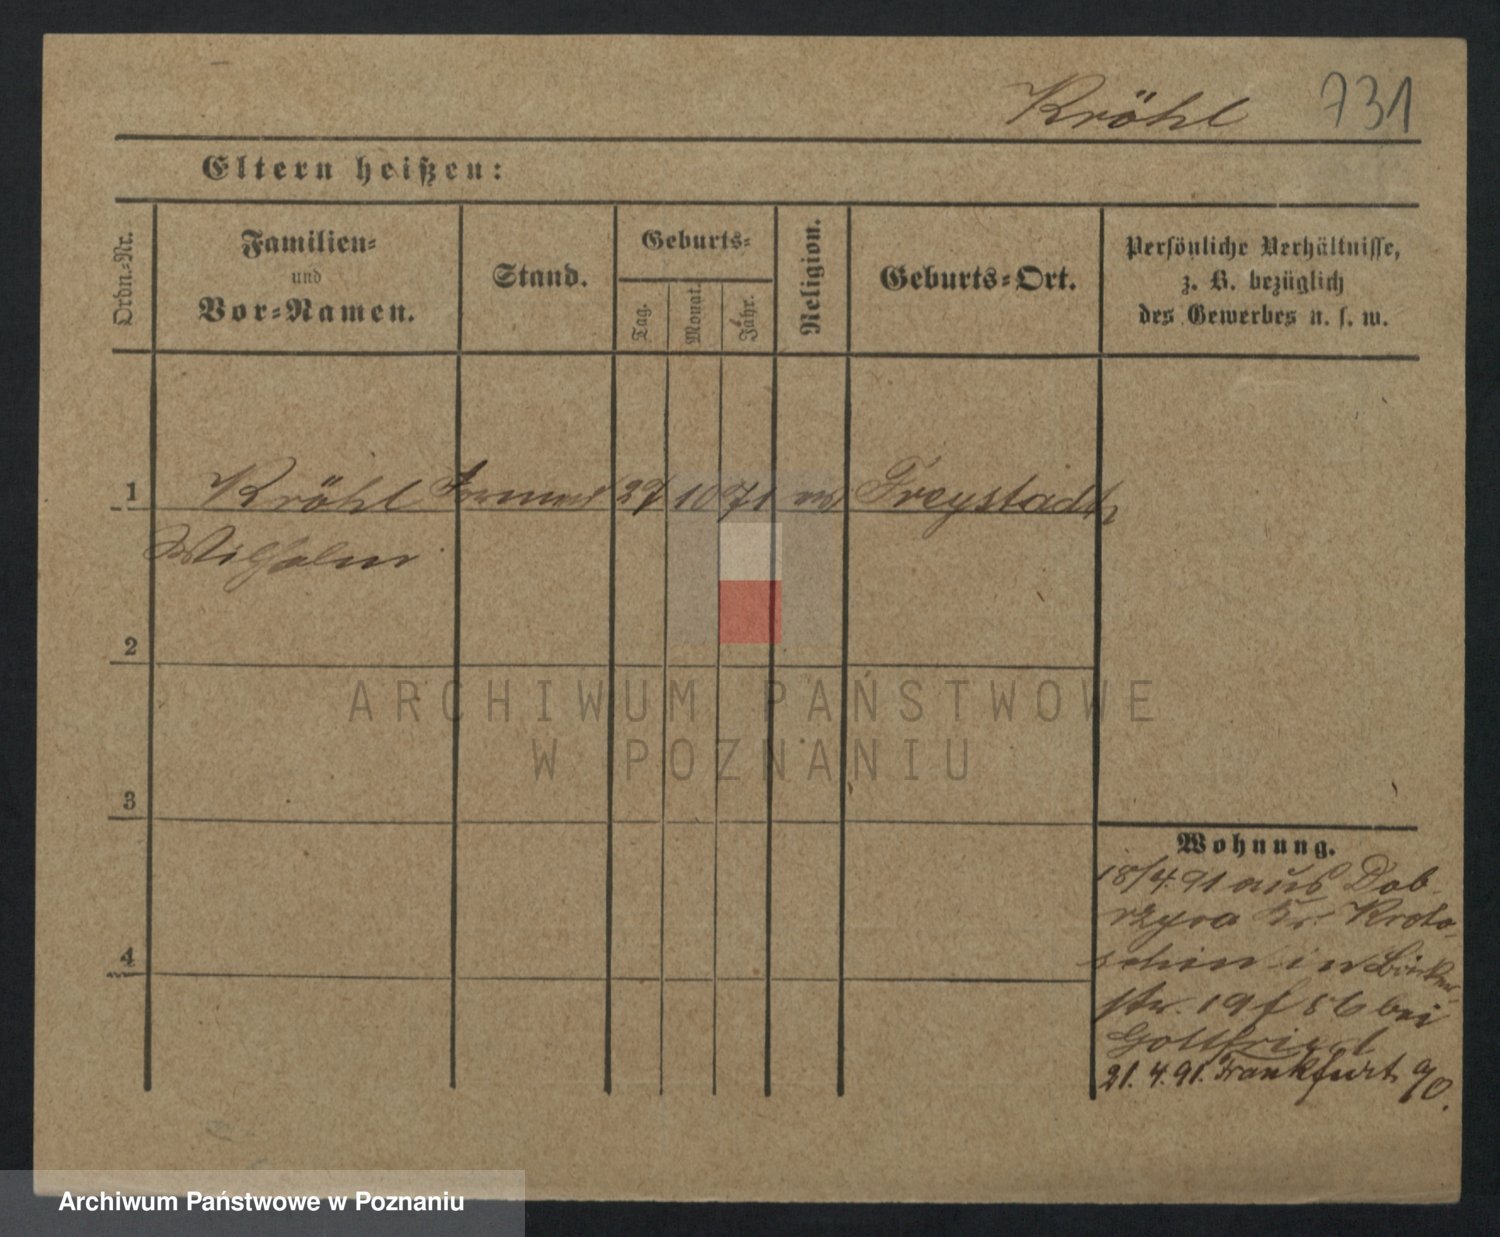 Kröhl 731
Eltern heißen:
Ordn.-Nr.
Familien-
und
Vor-Namen.
Stand.
Geburts-
Tag.
Monat.
Jahr.
Religion.
Geburts-Ort.
Persönliche Verhältnisse,
z. B. bezüglich
des Gewerbes u. s. w.
1 Kröhl 27 10 71 Freystadt
Wilhelm
2
3
4
Wohnung.
18/4.91 aus Dob-
rzyca Kr. Kroto-
schin in Bäcker-
str. 19 f 86 bei
Gottfried
21.4.91. Frankfurt
ARCHIWUM PAŃSTWOWE
W POZNANIU
Archiwum Państwowe w Poznaniu